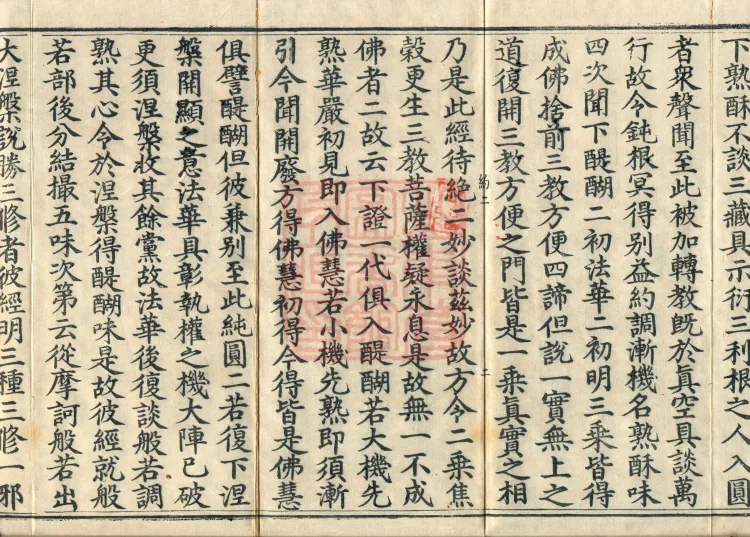 下熟酥不談三藏具示衍三利根之人入圓
者衆聲聞至此被加轉教旣於眞空具談萬
行故今鈍根冥得別益約調漸機名熟酥味
四次聞下醍醐二初法華二初明三乘皆得
成佛捨前三教方便四諦但說一實無上之
道復開三教方便之門皆是一乘眞實之相
約二 二
乃是此經待絶二妙談茲妙故方令二乘焦
穀更生三教菩薩權疑永息是故無一不成
佛者二故云下證一代俱入醍醐若大機先
熟華嚴初見即入佛慧若小機先熟即須漸
引今聞開廢方得佛慧初得今得皆是佛慧
俱譬醍醐但彼兼別至此純圓二若復下涅
槃開顯之意法華具彰執權之機大陣已破
更須涅槃收其餘黨故法華後復談般若調
熟其心令於涅槃得醍醐味是故彼經就般
若部後分結撮五味次第云從摩訶般若出
大涅槃說勝三修者彼經明三種三修一邪